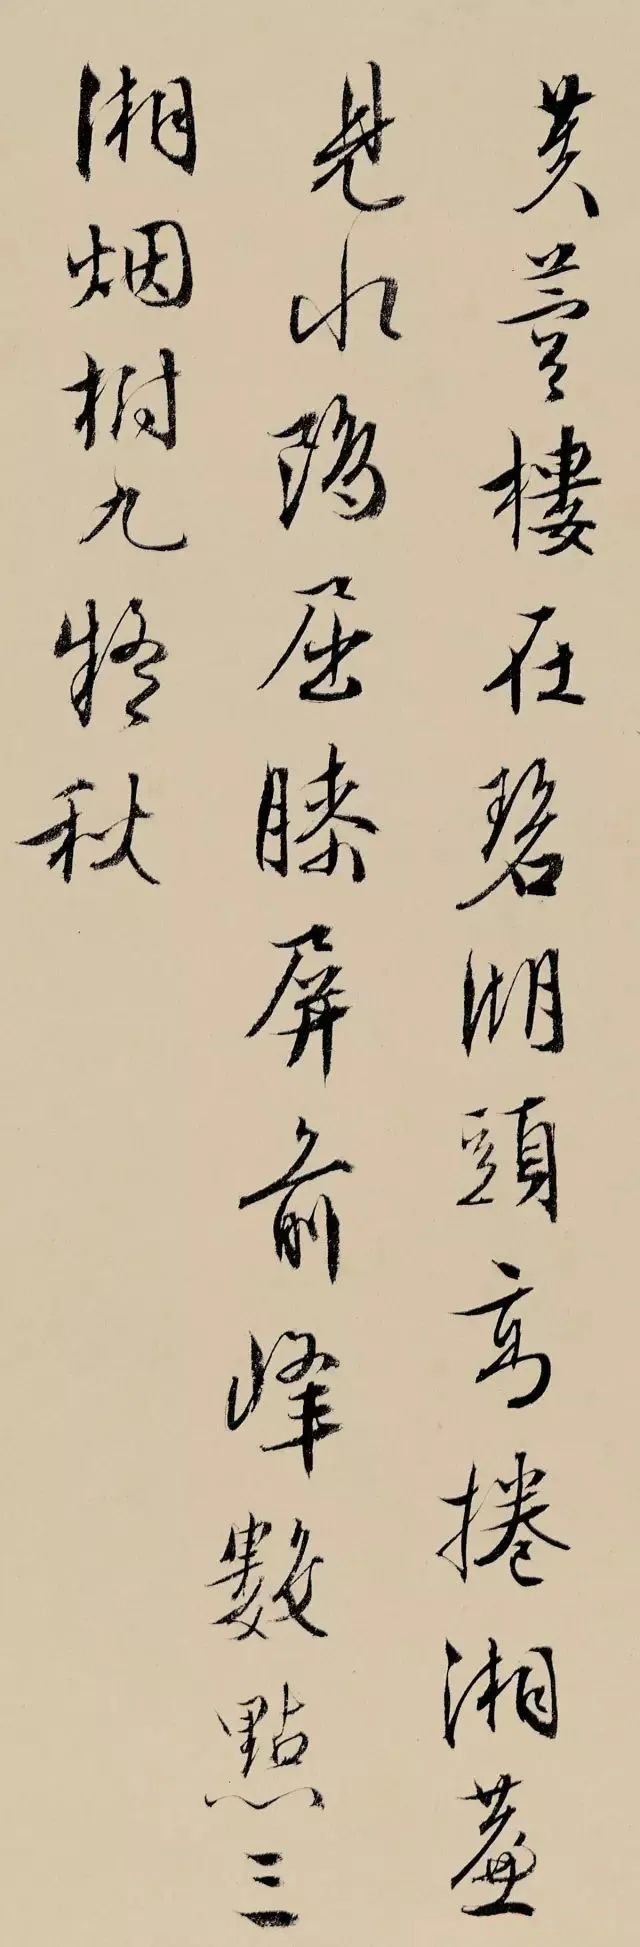 芙樓在碧湖頭高捲湘簾
見水鷗屈膝屏前峰數點三
湘烟樹九疑秋